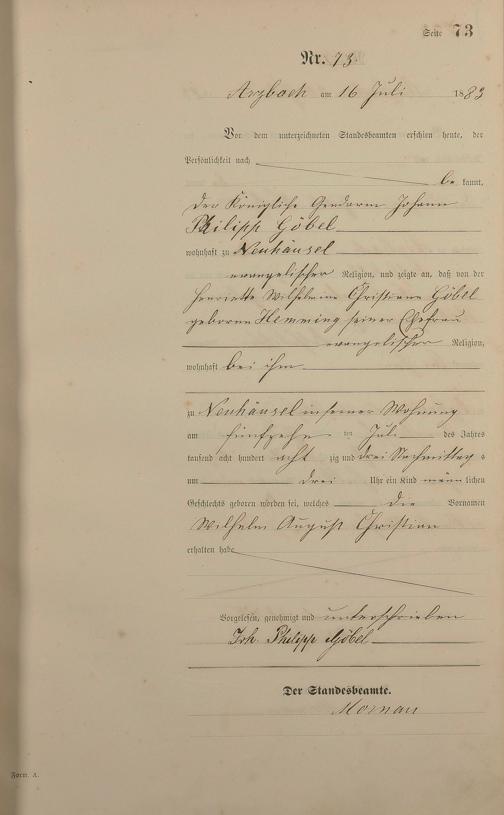 Seite 73
Nr. 73
Arzbach am 16 Juli 1883
Vor dem unterzeichneten Standesbeamten erschien heute, der
Persönlichkeit nach
be kannt,
der Königliche Gendarm Johann
Philipp Göbel
wohnhaft zu Neuhäusel
evangelischer Religion, und zeigte an, daß von der
Henriette Wilhelmine Christiane Göbel
geborne Hemming seiner Ehefrau
evangelischer Religion,
wohnhaft bei ihm
zu Neuhäusel in seiner Wohnung
am fünfzehn ten Juli des Jahres
tausend acht hundert acht zig und drei Nachmittags
um drei Uhr ein Kind männ lichen
Geschlechts geboren worden sei, welches die Vornamen
Wilhelm August Christian
erhalten habe
Vorgelesen, genehmigt und unterschrieben
Joh. Philipp Göbel
Der Standesbeamte.
Form. A.